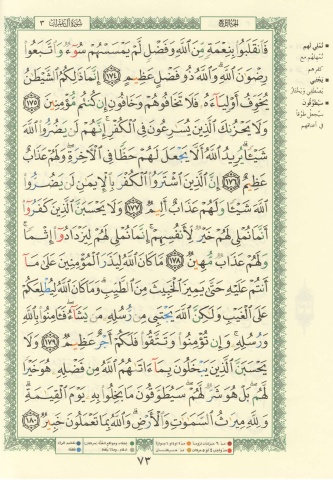 سورة آل عمران ٣
الجزء الرابع
فَٱنقَلَبُوا۟ بِنِعْمَةٍ مِّنَ ٱللَّهِ وَفَضْلٍ لَّمْ يَمْسَسْهُمْ سُوٓءٌ وَٱتَّبَعُوا۟
رِضْوَٰنَ ٱللَّهِ وَٱللَّهُ ذُو فَضْلٍ عَظِيمٍ ١٧٤ إِنَّمَا ذَٰلِكُمُ ٱلشَّيْطَٰنُ
يُخَوِّفُ أَوْلِيَآءَهُۥ فَلَا تَخَافُوهُمْ وَخَافُونِ إِن كُنتُم مُّؤْمِنِينَ ١٧٥
وَلَا يَحْزُنكَ ٱلَّذِينَ يُسَٰرِعُونَ فِى ٱلْكُفْرِ إِنَّهُمْ لَن يَضُرُّوا۟ ٱللَّهَ
شَيْـًٔا يُرِيدُ ٱللَّهُ أَلَّا يَجْعَلَ لَهُمْ حَظًّا فِى ٱلْـَٔاخِرَةِ وَلَهُمْ عَذَابٌ
عَظِيمٌ ١٧٦ إِنَّ ٱلَّذِينَ ٱشْتَرَوُا۟ ٱلْكُفْرَ بِٱلْإِيمَٰنِ لَن يَضُرُّوا۟
ٱللَّهَ شَيْـًٔا وَلَهُمْ عَذَابٌ أَلِيمٌ ١٧٧ وَلَا يَحْسَبَنَّ ٱلَّذِينَ كَفَرُوٓا۟
أَنَّمَا نُمْلِى لَهُمْ خَيْرٌ لِّأَنفُسِهِمْ إِنَّمَا نُمْلِى لَهُمْ لِيَزْدَادُوٓا۟ إِثْمًا
وَلَهُمْ عَذَابٌ مُّهِينٌ ١٧٨ مَّا كَانَ ٱللَّهُ لِيَذَرَ ٱلْمُؤْمِنِينَ عَلَىٰ مَآ
أَنتُمْ عَلَيْهِ حَتَّىٰ يَمِيزَ ٱلْخَبِيثَ مِنَ ٱلطَّيِّبِ وَمَا كَانَ ٱللَّهُ لِيُطْلِعَكُمْ
عَلَى ٱلْغَيْبِ وَلَٰكِنَّ ٱللَّهَ يَجْتَبِى مِن رُّسُلِهِۦ مَن يَشَآءُ فَـَٔامِنُوا۟ بِٱللَّهِ
وَرُسُلِهِۦ وَإِن تُؤْمِنُوا۟ وَتَتَّقُوا۟ فَلَكُمْ أَجْرٌ عَظِيمٌ ١٧٩ وَلَا
يَحْسَبَنَّ ٱلَّذِينَ يَبْخَلُونَ بِمَآ ءَاتَىٰهُمُ ٱللَّهُ مِن فَضْلِهِۦ هُوَ خَيْرًا
لَّهُم بَلْ هُوَ شَرٌّ لَّهُمْ سَيُطَوَّقُونَ مَا بَخِلُوا۟ بِهِۦ يَوْمَ ٱلْقِيَٰمَةِ
وَلِلَّهِ مِيرَٰثُ ٱلسَّمَٰوَٰتِ وَٱلْأَرْضِ وَٱللَّهُ بِمَا تَعْمَلُونَ خَبِيرٌ ١٨٠
نملي لهم
نمهلهم مع
كفرهم
يجتبي
يصطفي ويختار
سيطوقون
سيجعل طوقا
في أعناقهم
٧٣